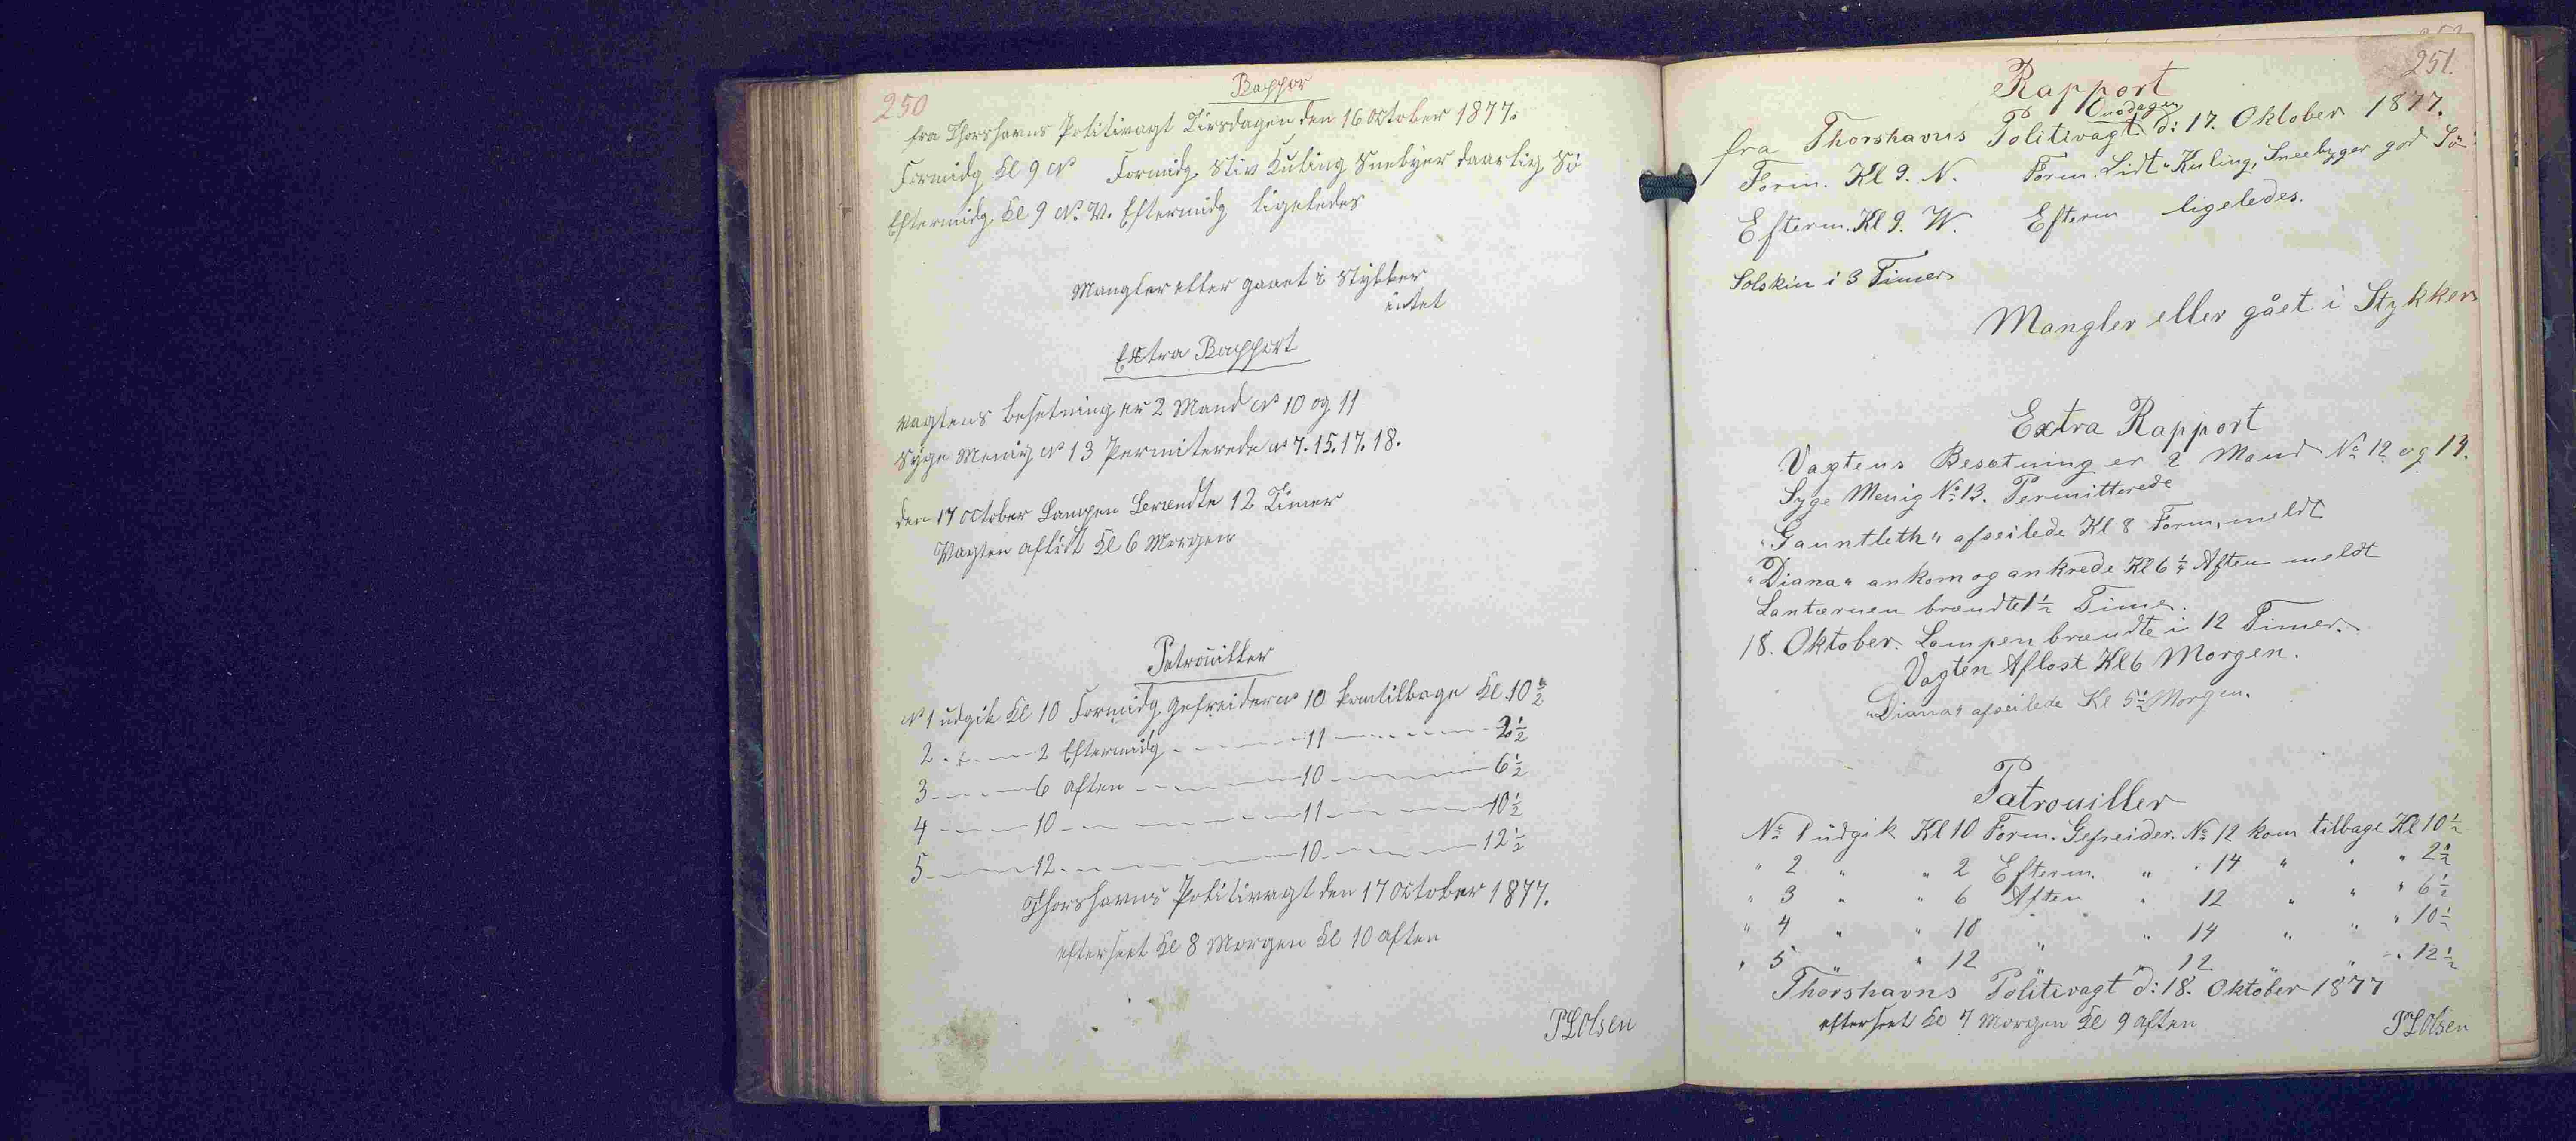 250
Rappor
fra Thorshavns Politivagt Tirsdagen den 16 October 1877.
Formidg Kl 9 N Formidg. Stiv Kuling Snebÿer daarlig Sö
Eftermidg. Kl 9 N. V. Eftermidg ligeledes
Mangler eller gaaet i Stÿkker
intet
Extra Rapport
Vagtens besetning er 2 Mand No 10 og 11
Sÿge Menig No 13 Permiterede no 7. 15. 17. 18.
den 17 October Lampen Brændte 12 Timer
Vagten aflöst Kl 6 Morgen
Patrouiller
No 1 udgik Kl 10 Formidg. Gefreider no 10 kom tilbage Kl. 10 1/2
2 2 Eftermidg 11 2 1/2
3 6 Aften 10 6 1/2
4 10 11 10 1/2
5 12 10 12 1/2
Thorshavns Politivagt den 17 October 1877.
efterseet Kl 8 Morgen Kl 10 aften
PLOlsen
251.
Rapport
fra Thorshavns Politivagt Onsdagen d: 17. Oktober 1877.
Form. Kl 9. N. Form. Lidt Kuling, Sneebyger god Sö
Efterm. Kl 9. W. Efterm ligeledes.
Solskin i 3 Timer
Mangler eller gået i Stykker
Extra Rapport
Vagtens Besætning er 2 Mand No 12 og 14.
Syge Menig No 13. Permitterede
"Gauntleth" afseilede Kl 8 Form, meldt
"Diana" ankom og ankrede Kl 6 1/4 Aften meldt
Lantærnen brændte 1 1/2 Time.
18. Oktober. Lampen brændte i 12 Timer.
Vagten Afløst Kl 6 Morgen.
"Diana" afseilede Kl 5 1/2 Morgen.
Patrouiller
No 1 udgik Kl 10 Form. Gefreider. No 12 kom tilbage Kl 10 1/2
" 2 " " 2 Efterm. " " 14 " " " 2 1/2
" 3 " " 6 Aften " 12 " " " 6 1/2
" 4 " " 10 " " 14 " " " 10 1/2
" 5 " " 12 " " 12 " " " 12 1/2
Thorshavns Politivagt d: 18. Oktober 1877
efterseet Kl 7 Morgen Kl 9 aften
PLOlsen